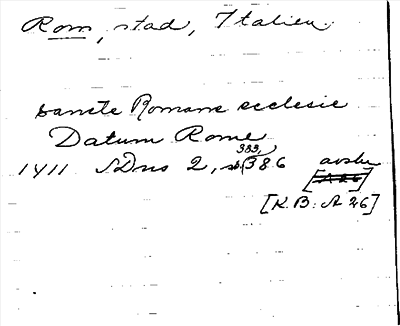 Rom, stad, Italien.
sancte Romane ecclesie
Datum Rome
383,
1411 SDns 2, s. 386 avskr
[A 26]
[K.B: A 26]